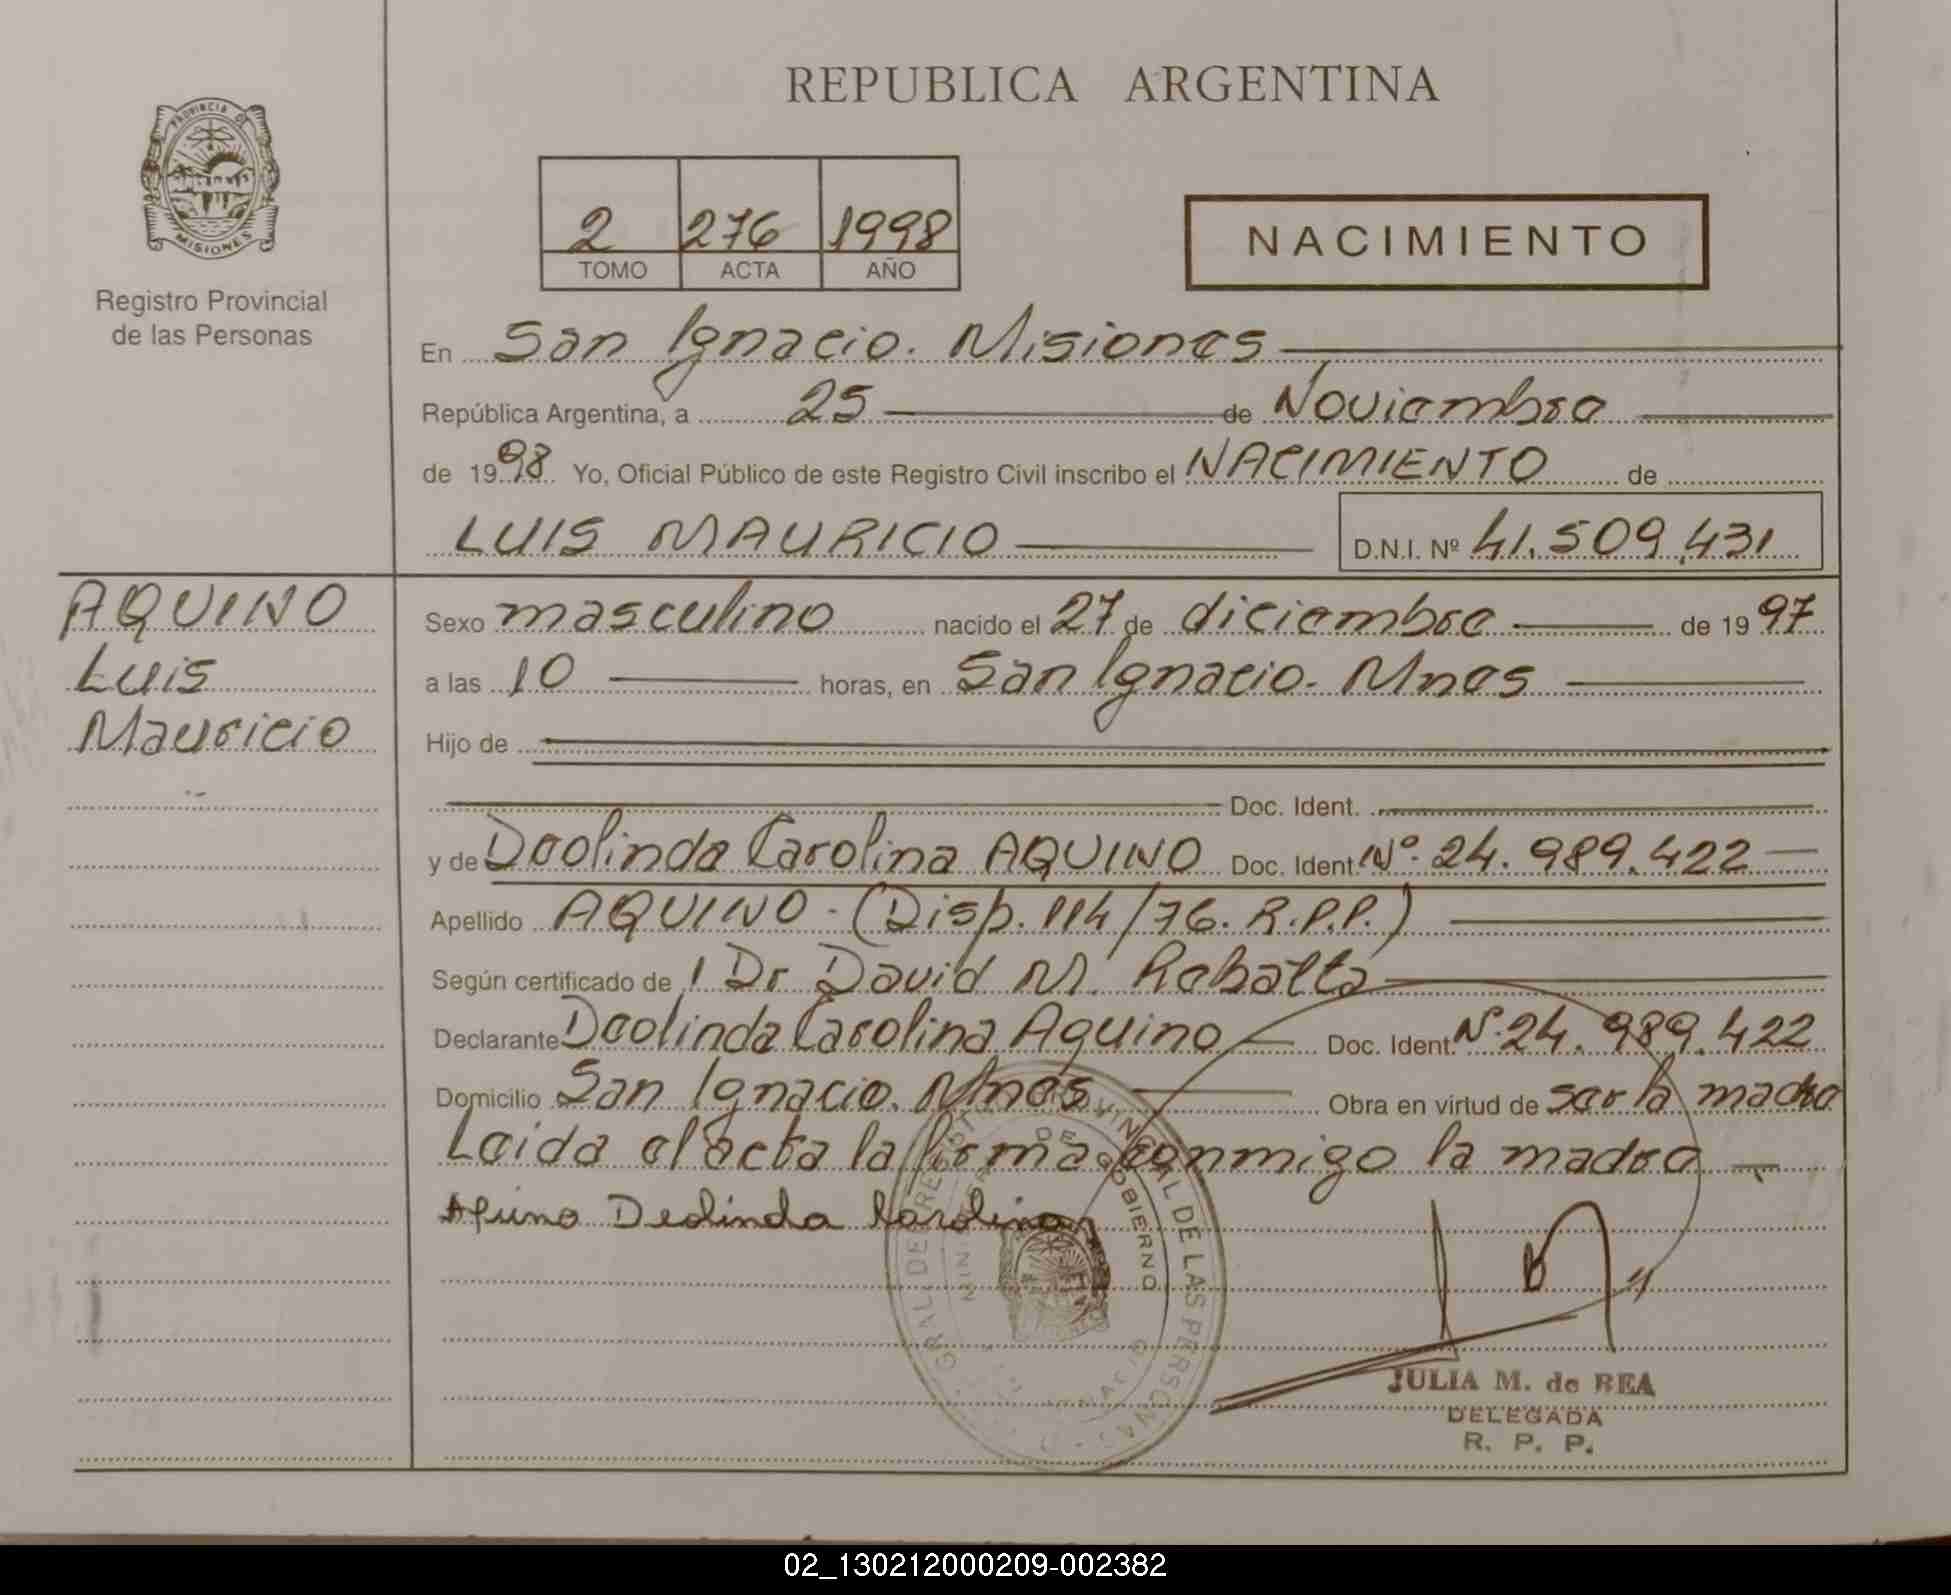 REPUBLICA ARGENTINA
PROVINCIA DE
MISIONES
Registro Provincial
de las Personas
2 276 1998
TOMO ACTA AÑO
NACIMIENTO
En San Ignacio. Misiones
República Argentina, a 25 de Noviembre
de 1998 Yo, Oficial Público de este Registro Civil inscribo el NACIMIENTO de
LUIS MAURICIO D.N.I. Nº 41.509.431
AQUINO
Luis
Mauricio
Sexo masculino nacido el 27 de diciembre de 1997
a las 10 horas, en San Ignacio. Mnes
Hijo de
Doc. Ident.
y de Deolinda Carolina AQUINO Doc. Ident. Nº 24.989.422
Apellido AQUINO - (Disp. 114/76. R.P.P.)
Según certificado de Dr David M. Rebatta
Declarante Deolinda Carolina Aquino Doc. Ident. Nº 24.989.422
Domicilio San Ignacio. Mnes Obra en virtud de ser la madre
Leida el acta la firma conmigo la madre
Aquino Deolinda Carolina
GRAL. DEL REGISTRO PROVINCIAL DE LAS PERSONAS
DE GOBIERNO
JULIA M. de REA
DELEGADA
R. P. P.
02_130212000209-002382